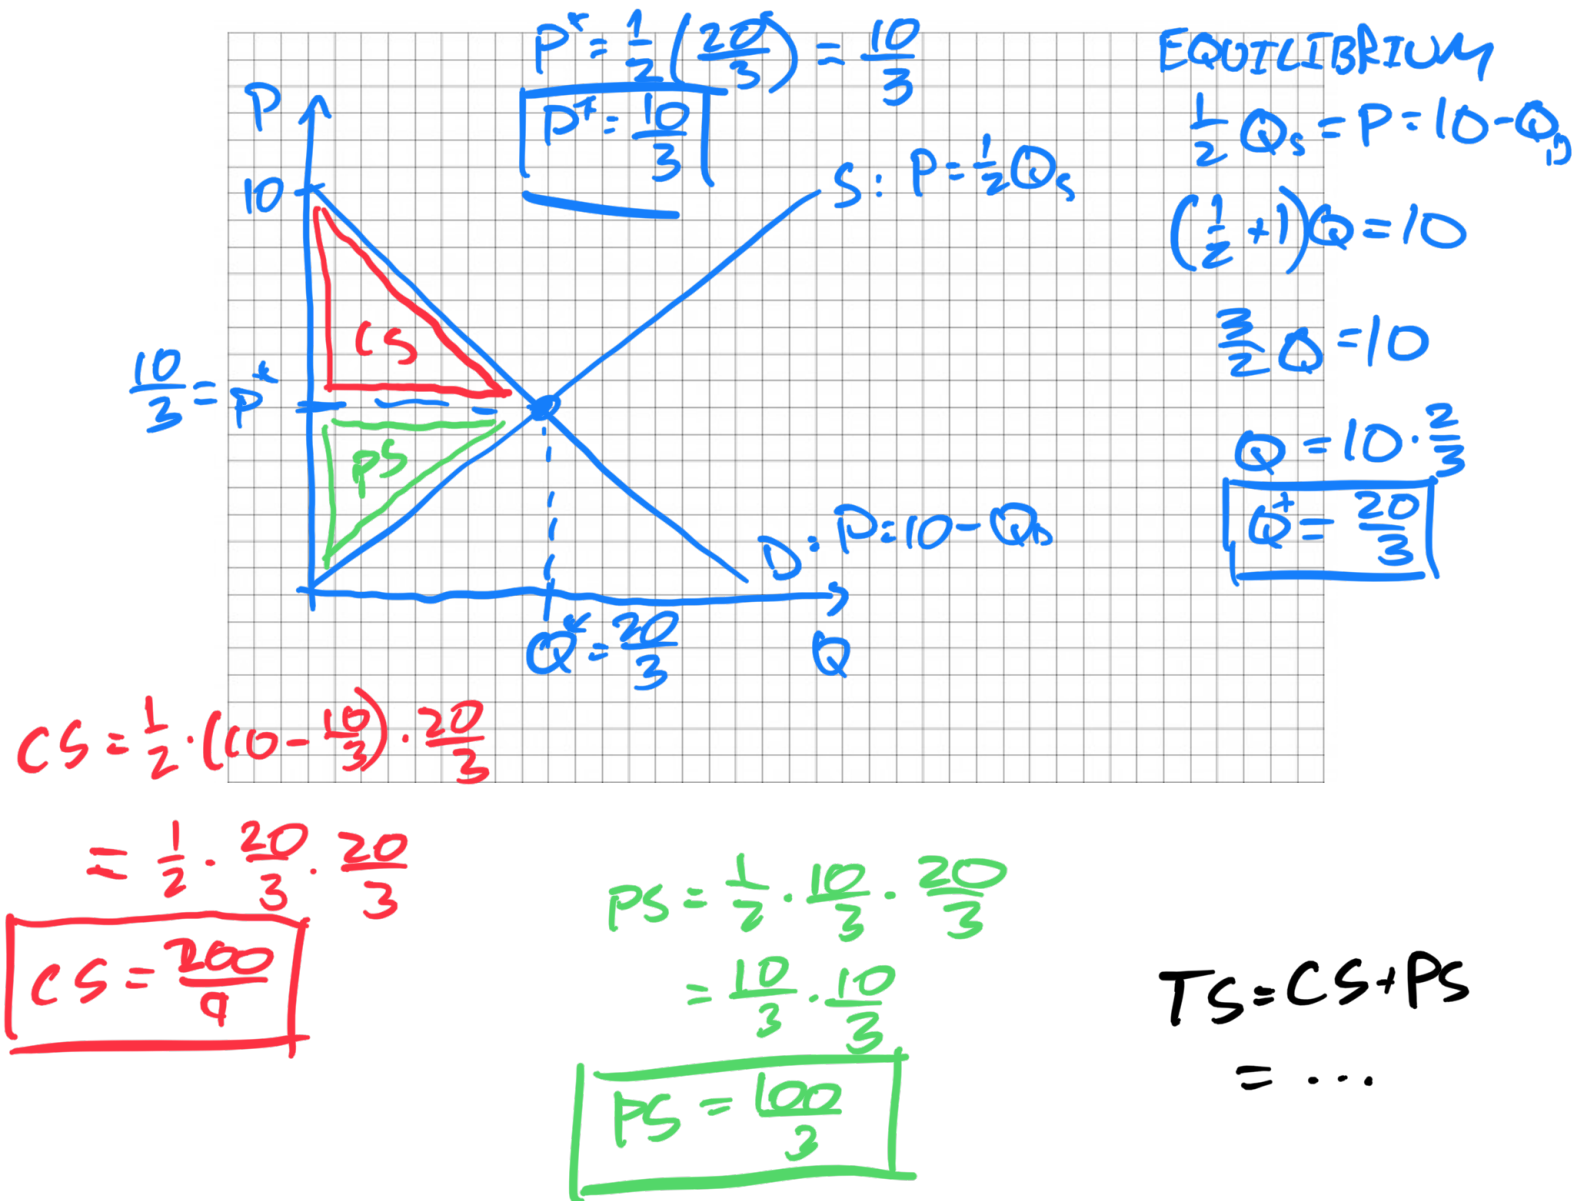 P* = 1/2 (20/3) = 10/3
P* = 10/3
EQUILIBRIUM
1/2 Qs = P = 10 - QD
(1/2 + 1)Q = 10
3/2 Q = 10
Q = 10 · 2/3
Q* = 20/3
P
10
S: P = 1/2 Qs
CS
10/3 = P*
PS
D: P = 10 - QD
Q* = 20/3
Q
CS = 1/2 · (10 - 10/3) · 20/3
= 1/2 · 20/3 · 20/3
CS = 200/9
PS = 1/2 · 10/3 · 20/3
= 10/3 · 10/3
PS = 100/3
TS = CS + PS
= ...